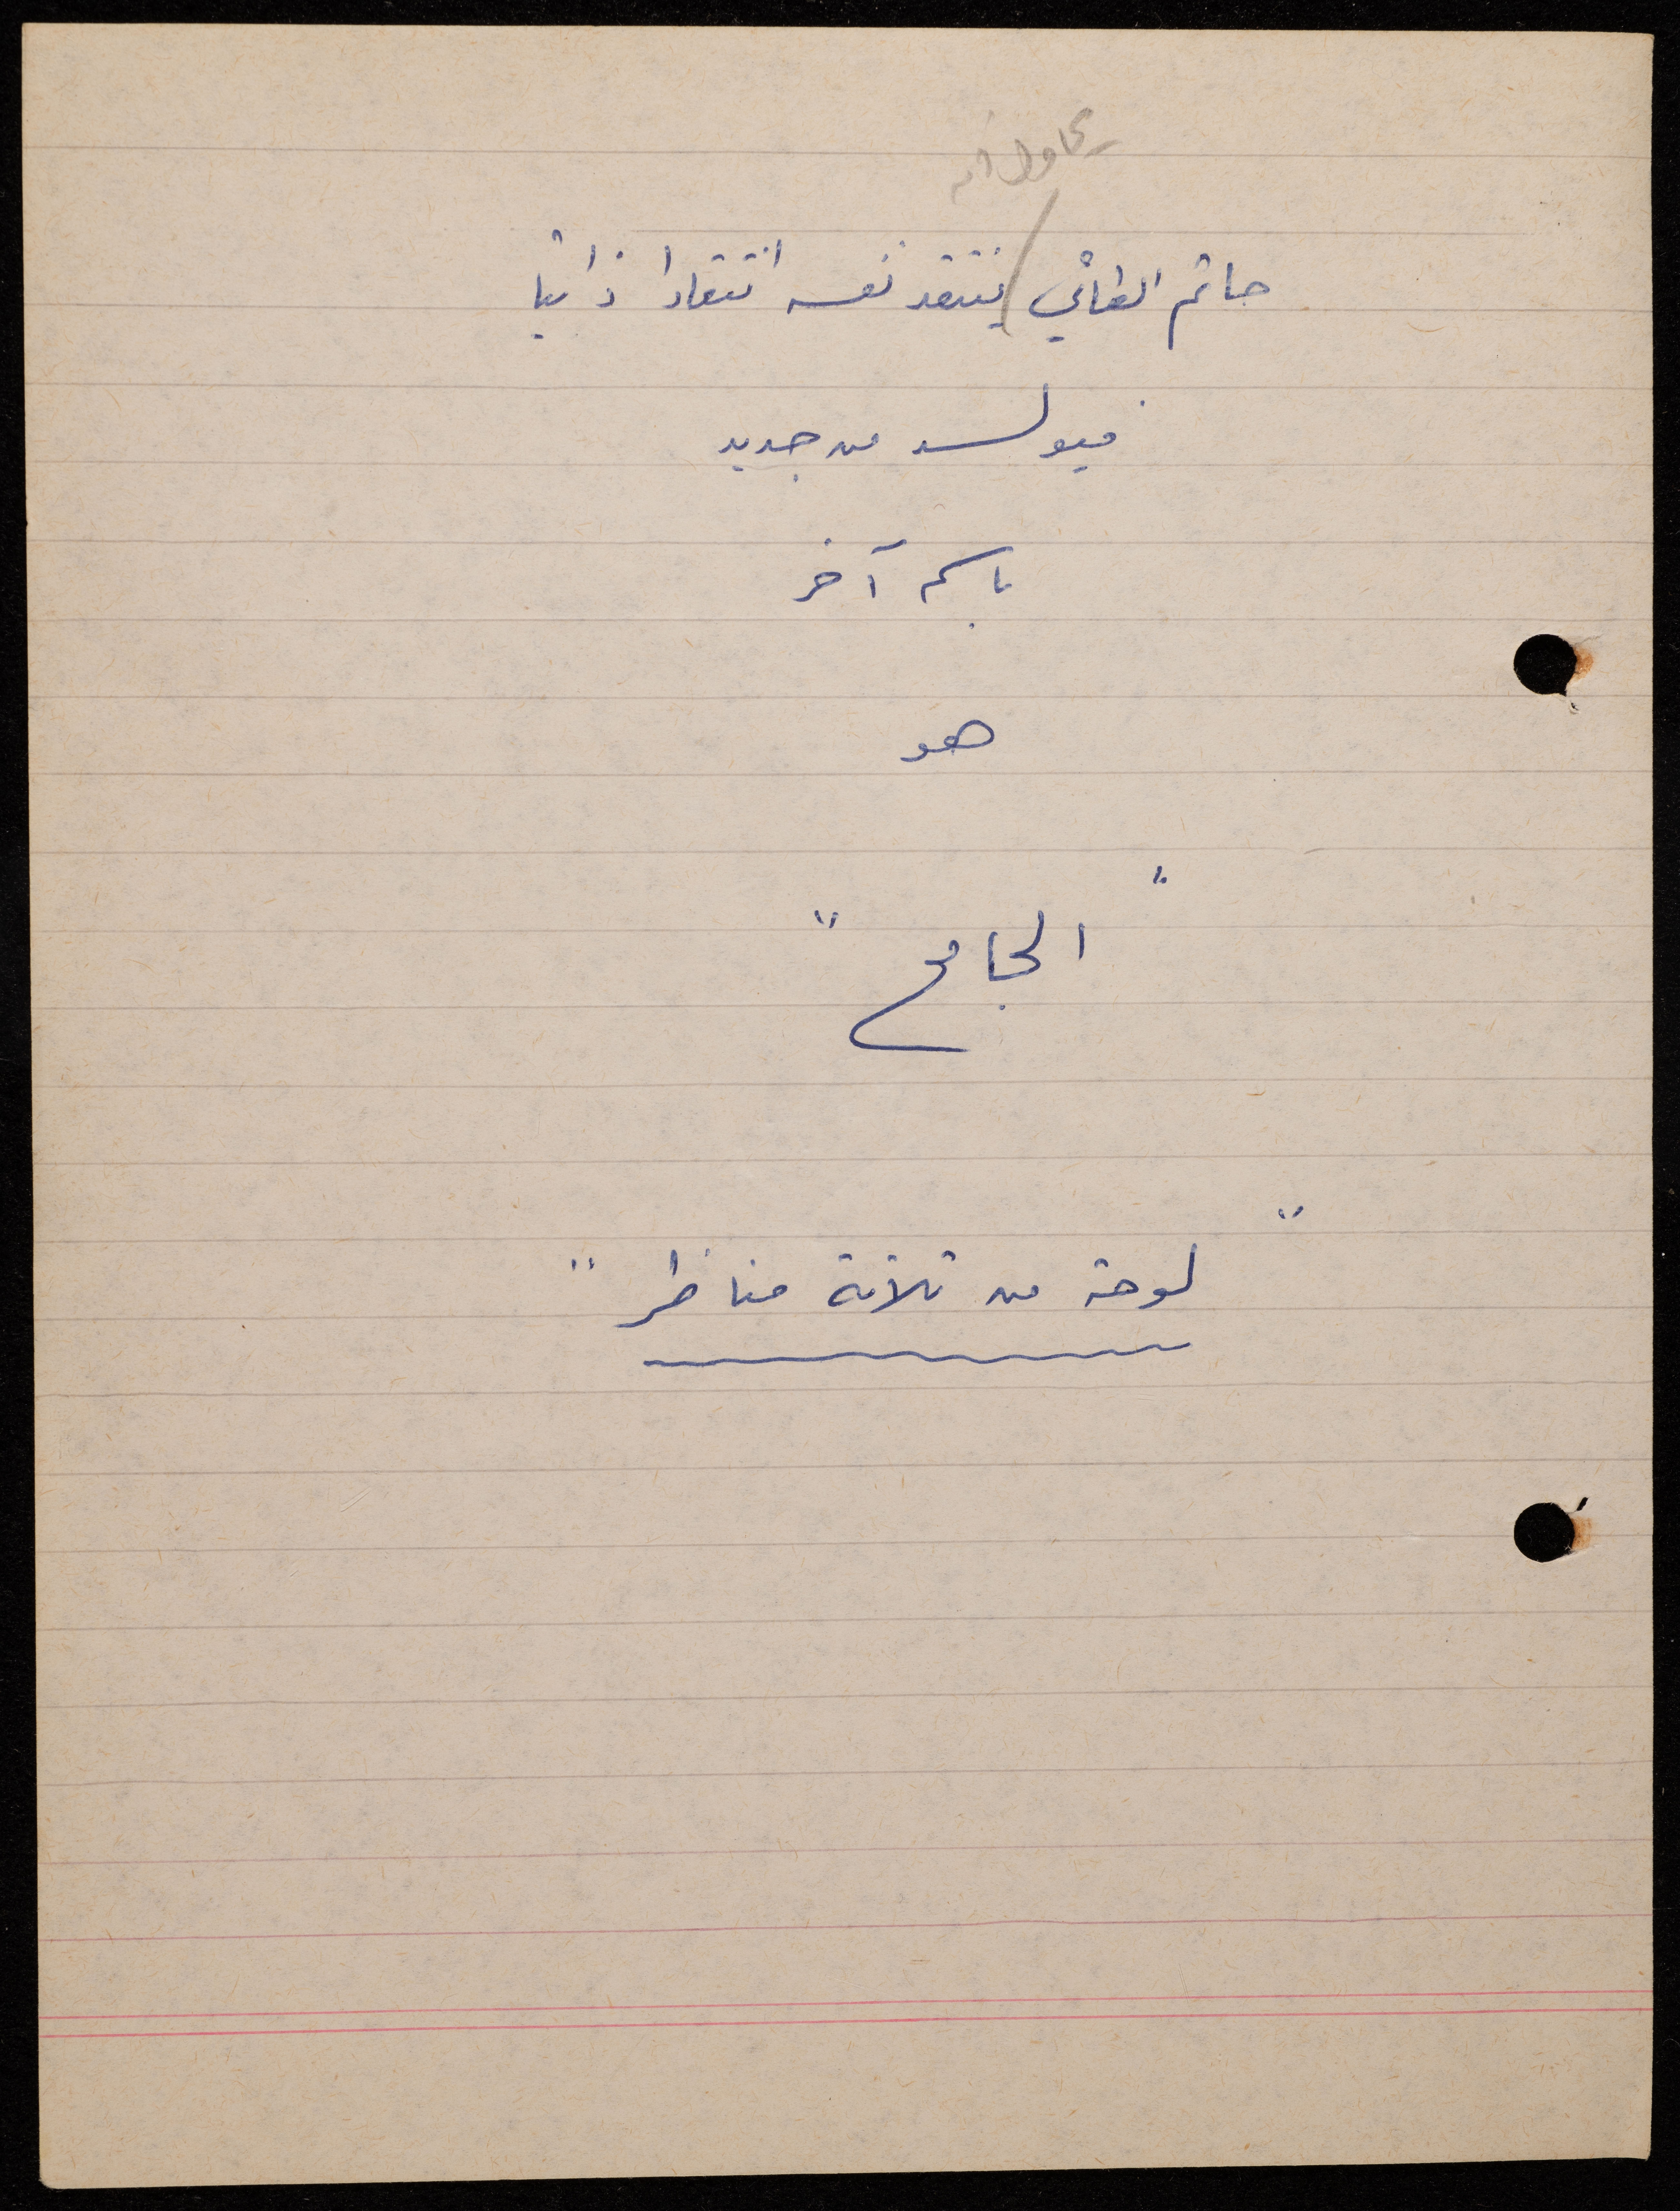 يحاول أن
حاتم الطائي / ينتقد نفسه انتقادا ذاتيا
فيولد من جديد
باسم آخر
هو
"الجامح"
"لوحة من ثلاثة مناظر"